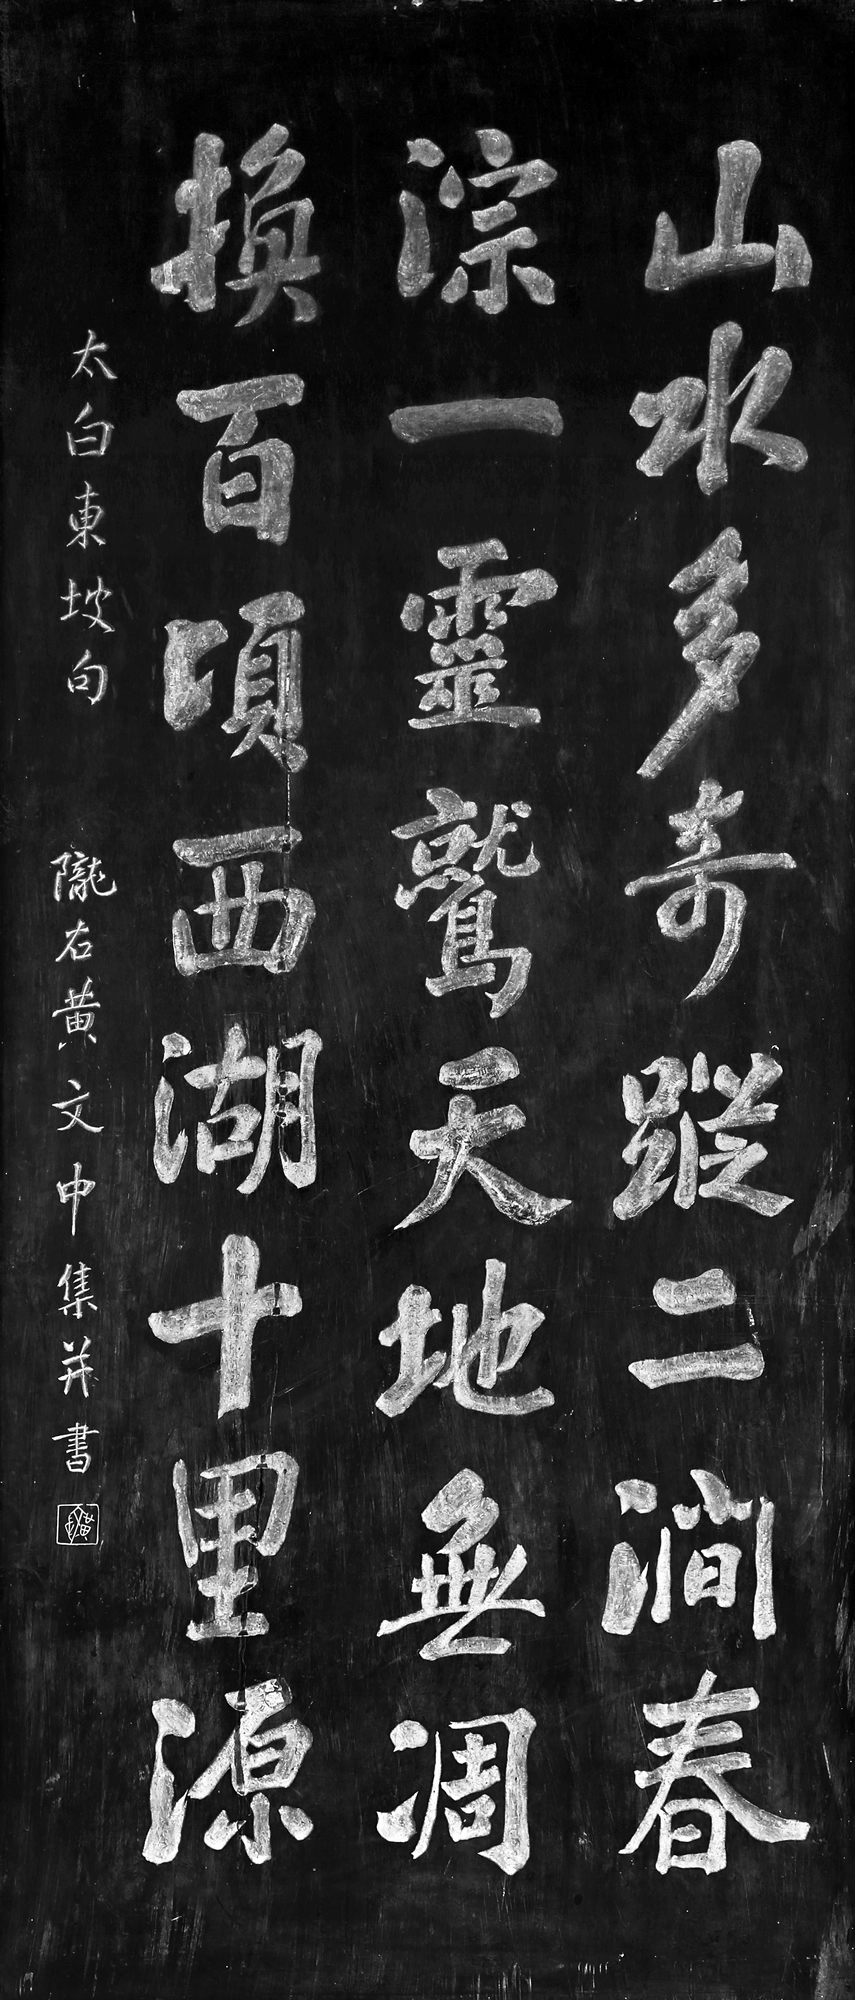 山水多奇蹤二澗春
淙一靈鷲天地無凋
換百頃西湖十里源
太白東坡句 隴右黄文中集并書